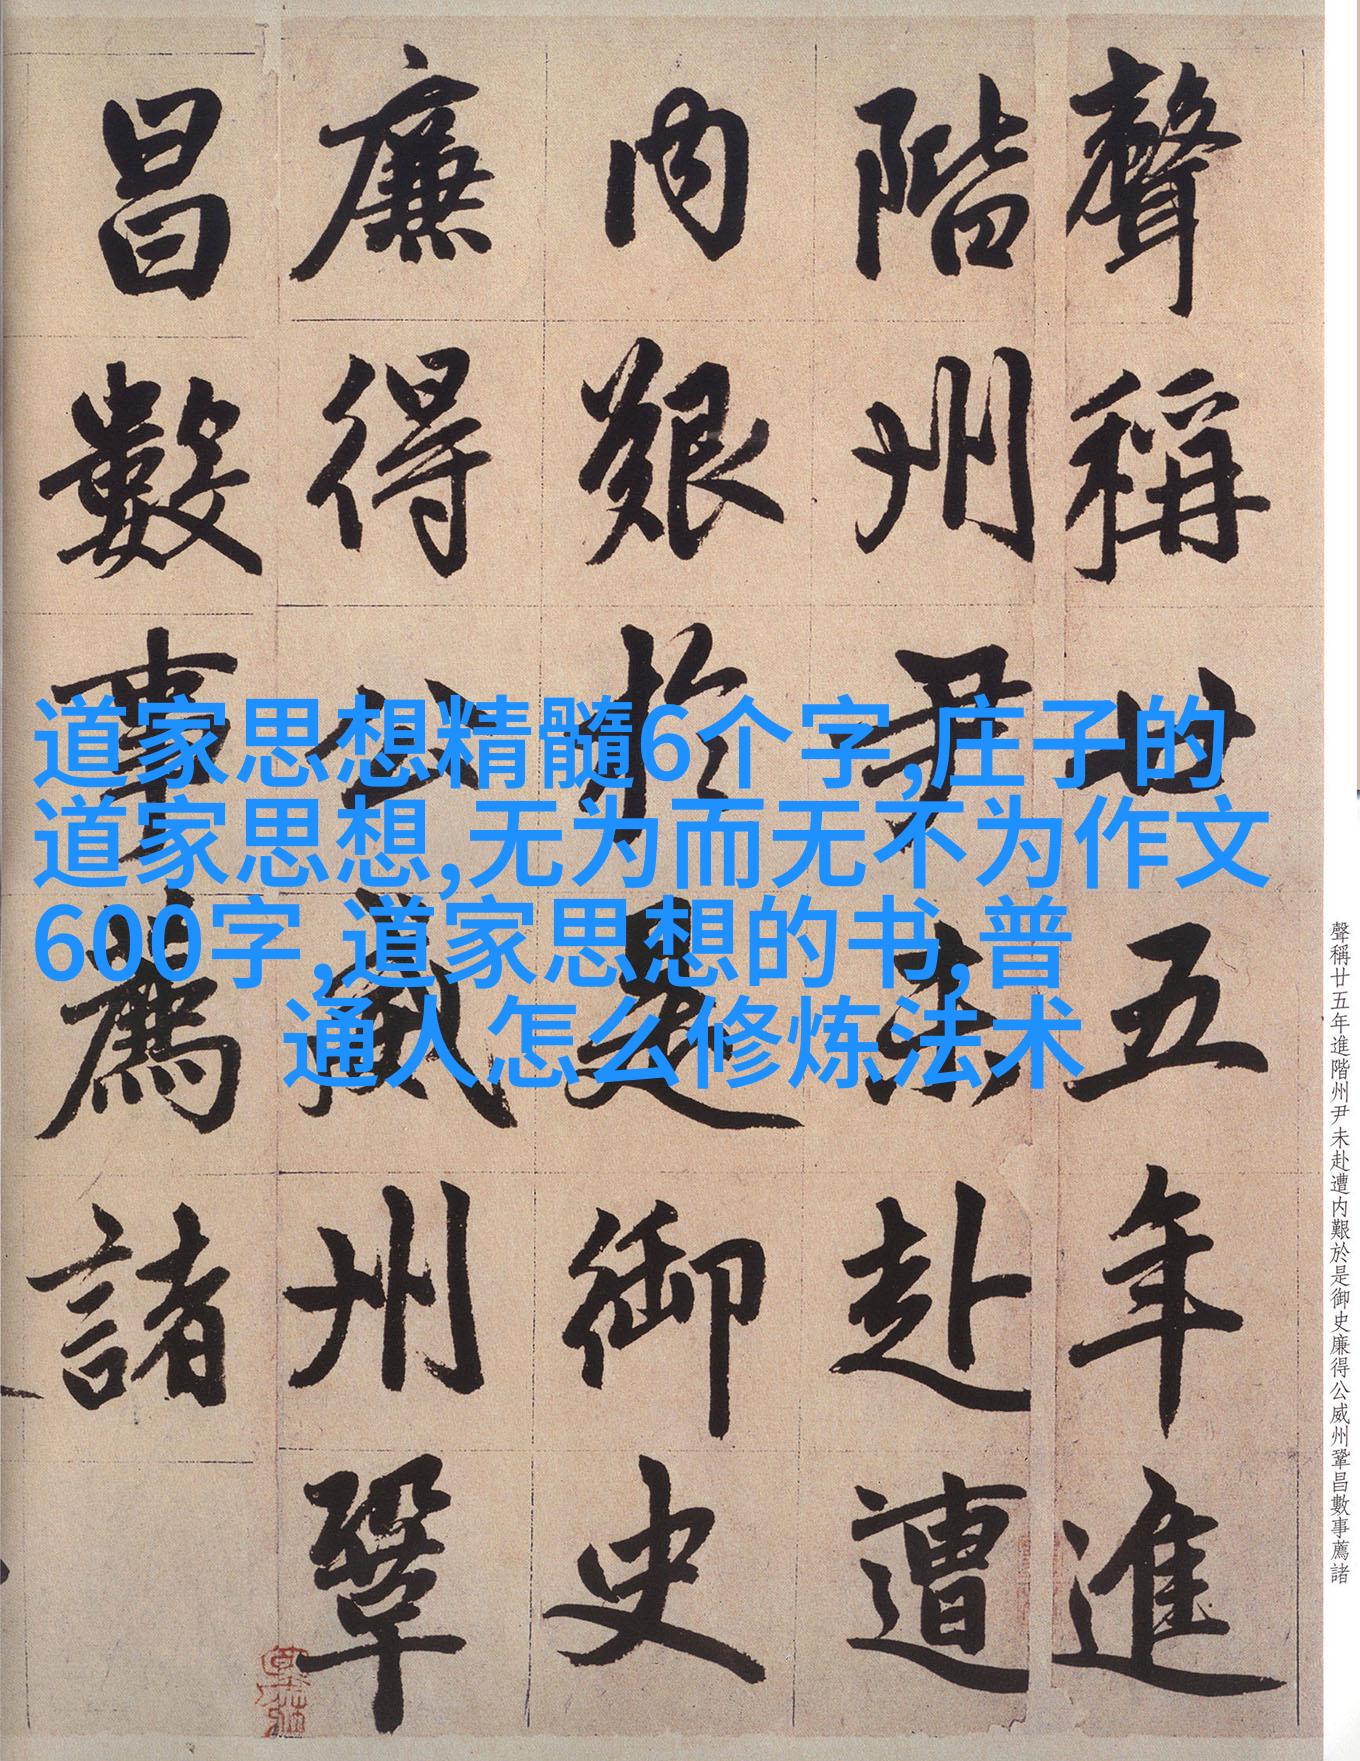 聲稱廿五年進
階州尹未赴遭
内艱於是御史
廉得公威州鞏
昌數事薦諸
道家思想精髓6个字,庄子的
道家思想,无为而无不为作文
600字,道家思想的书,普
通人怎么修炼法术
聲稱廿五年進階州尹未赴遭内艱於是御史廉得公威州鞏昌數事薦諸